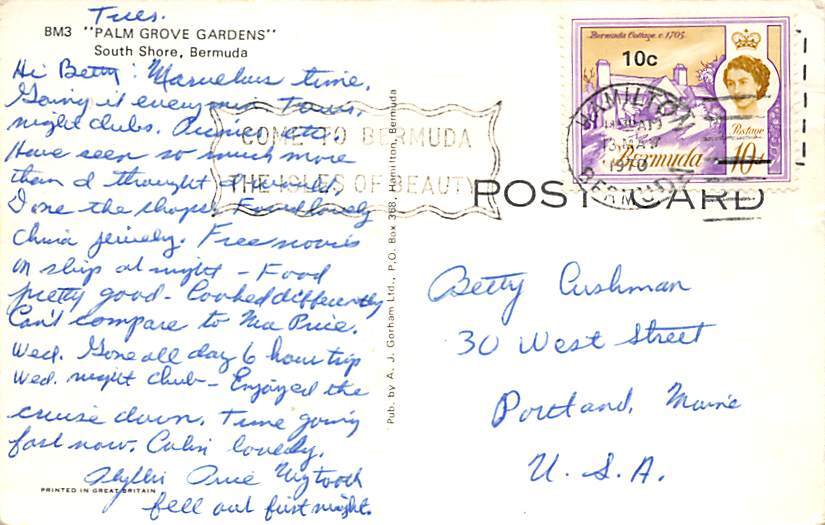 Tues.
BM3 "PALM GROVE GARDENS"
South Shore, Bermuda
Hi Betty: Marvelous time.
Going it every min. Tours,
night clubs. Picnic etc.
Have seen so much more
than I thought I would.
Done the shops. Found lovely
china jewely. Free movies
on ship at night - Food
pretty good - Cooked differently
Can't compare to Ma Price.
Wed. Gone all day 6 hour trip
Wed. night club - Enjoyed the
cruise down. Time going
fast now. Cabin lovely.
Phyllis My tooth
fell out first night.
PRINTED IN GREAT BRITAIN
Pub. by A. J. Gorham Ltd., P.O. Box 368, Hamilton, Bermuda
COME TO BERMUDA
THE ISLES OF BEAUTY
Bermuda Cottage c. 1705
10c
Postage
Bermuda 10/-
HAMILTON
13 MAY
1970
BERMUDA
POST CARD
Betty Cushman
30 West Street
Portland, Maine
U.S.A.